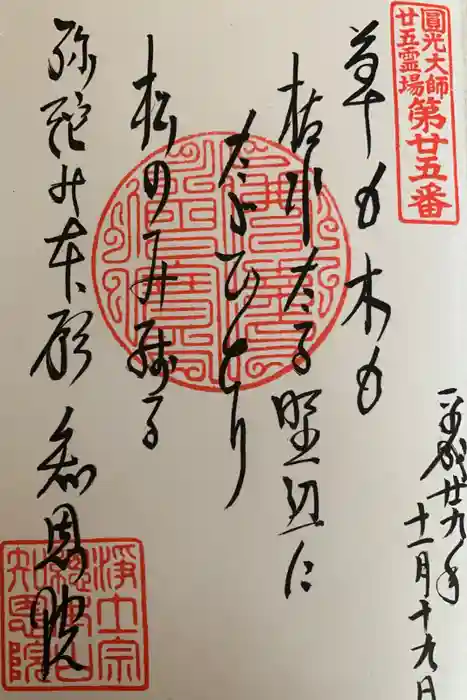 圓光大師
廿五霊場
第廿五番
草も木も
枯れたる野辺に
たゞひとり
松のみ残る
弥陀の本願
知恩院
平成廿九年
十一月十九日
浄土宗
總本山
知恩院